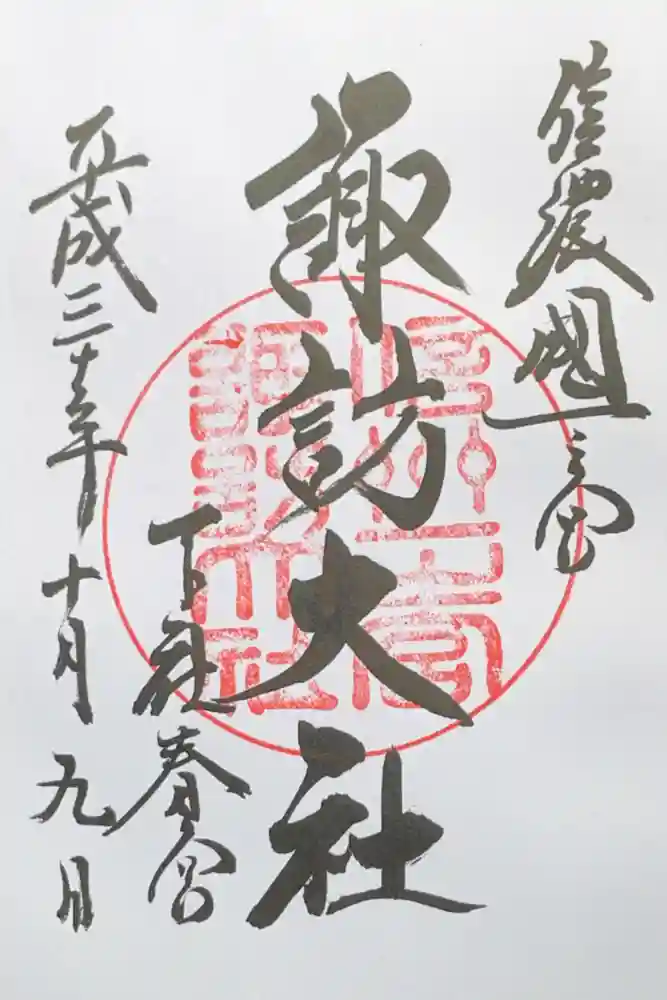 信濃國一之宮
諏訪大社
下社春宮
平成三十年十月九日
信州一宮
諏訪大社